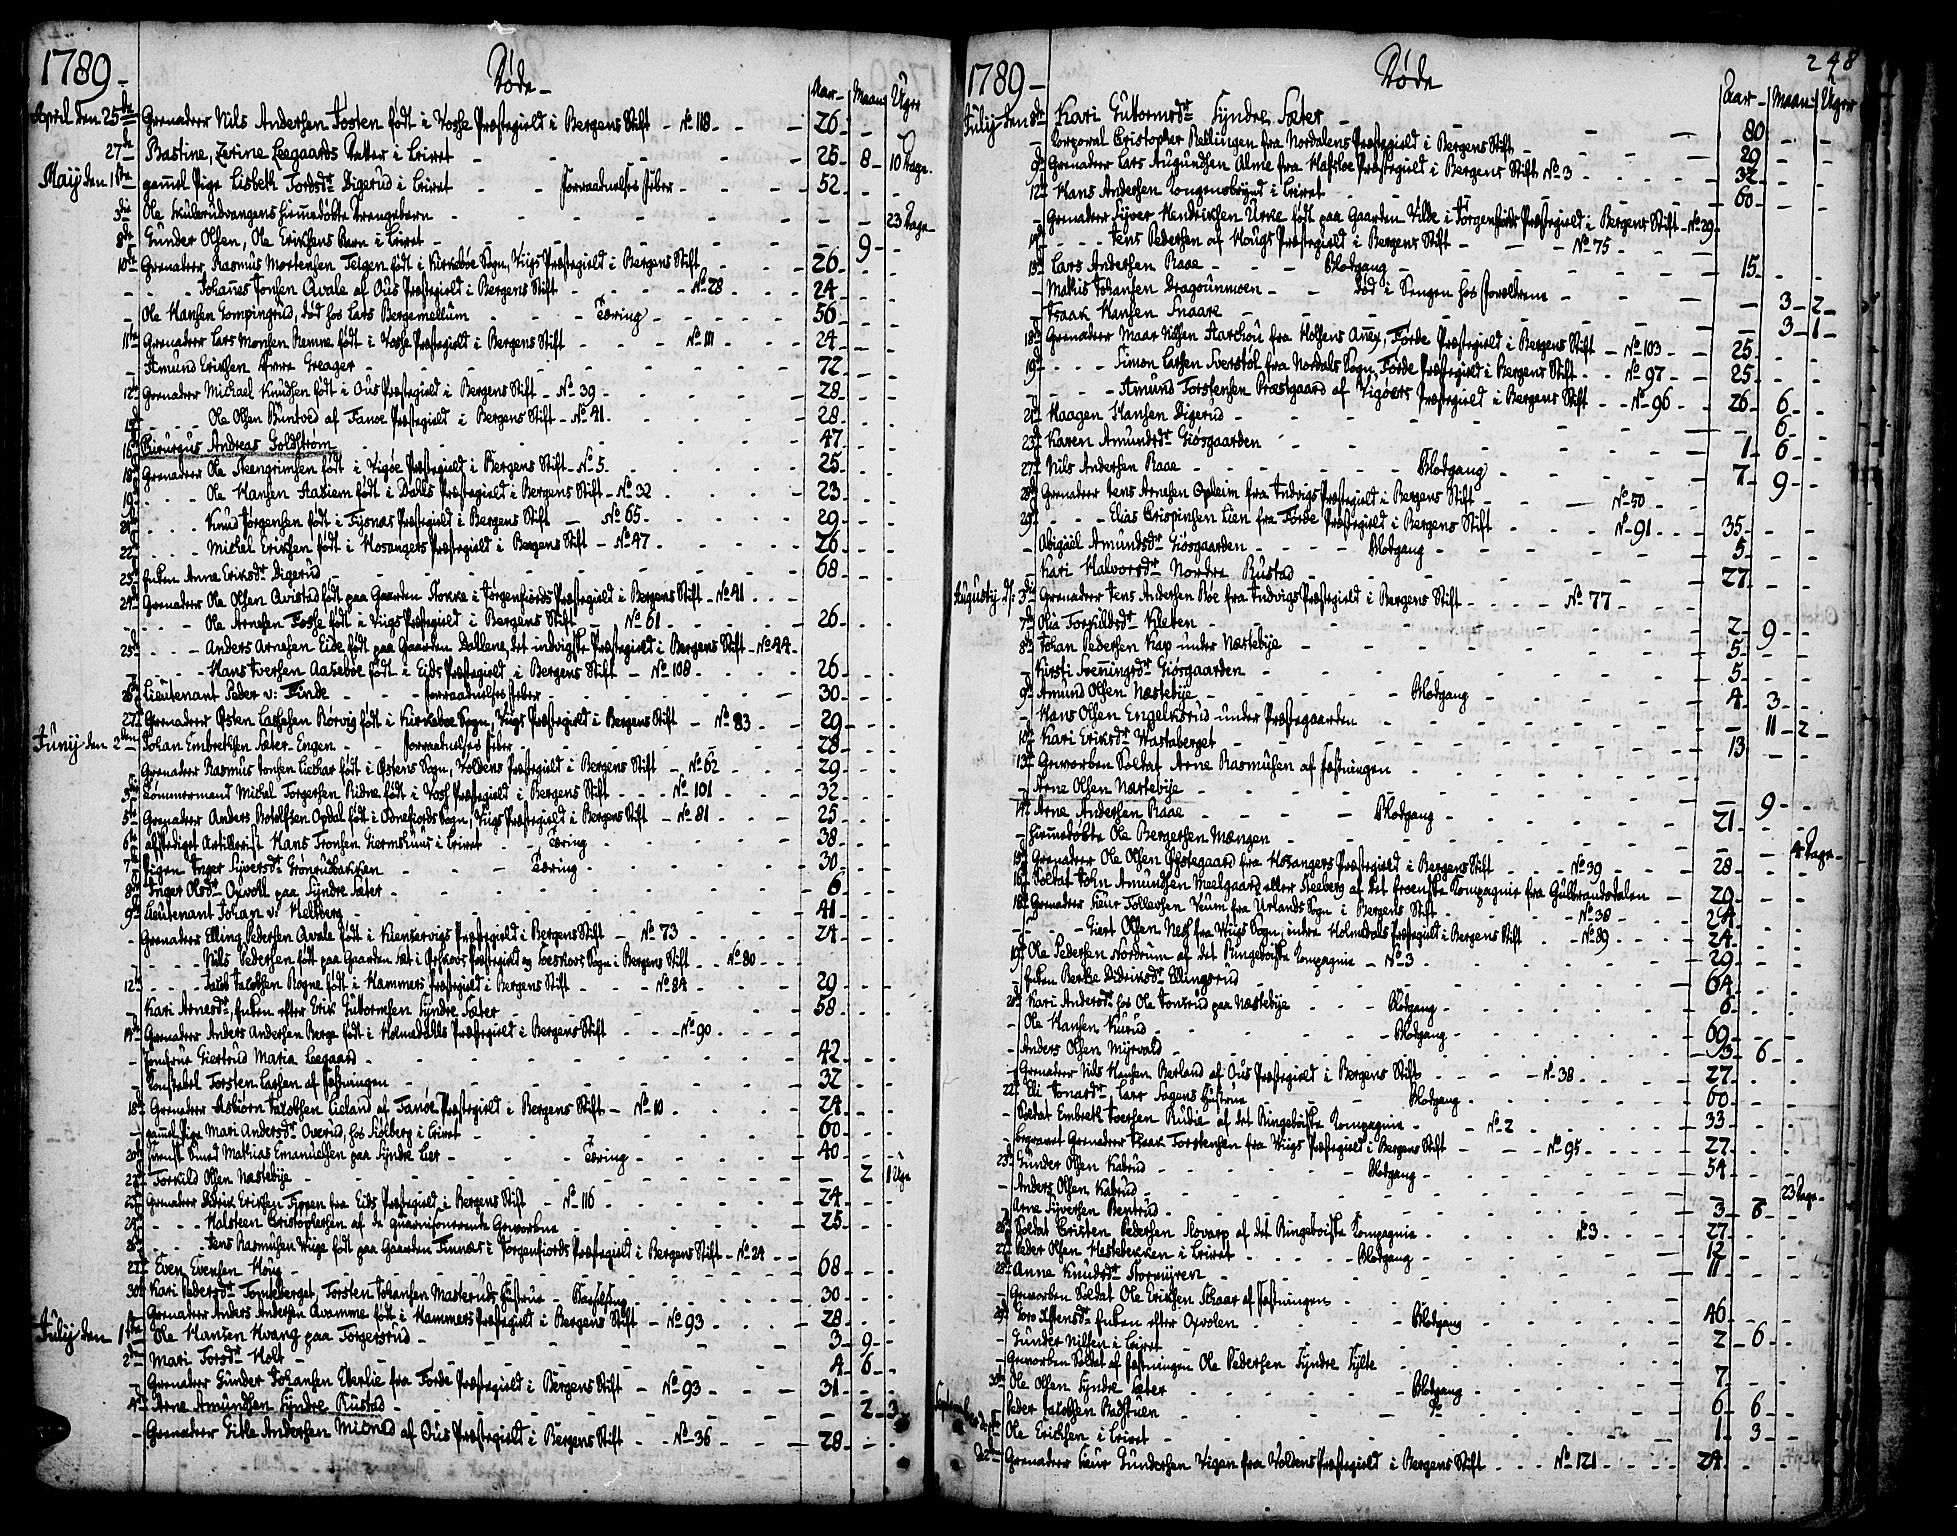 1789 -
Døde -
Aar - Maan Uger
April den 25de Grenadeer Nils Andersen Tosten født i Vosse Præstegield i Bergens Stift - No 118 - 26
27de Bastine, Zerine Leegaards Datter i Leiret - 25 - 8 - 10 Dage
Maij den 1ste gamel Pige Lisbeth Tordsdr Digerud i Leiret - Forraadnelses Feber - 52
3die Ole Kulerudvangens hiemedøbte Drengebarn - 23 Dage
8de Gunder Olsen, Ole Eriksens Barn i Leiret - 9
10de Grenadeer Rasmus Mortensen Telgen født i Kirkeboe Sogn, Viigs Præstegield i Bergens Stift - 26
Johanes Jonsen Qvale af Ous Præstegield i Bergens Stift - No 28 - 24
Ole Hansen Tompingrud, død hos Lars Bergemellum - Tæring - 56
11te Grenadeer Lars Monsen Remne født i Vosse Præstegield i Bergens Stift - No 111 - 24
Amund Eriksen Greager - 72
12te Grenadeer Michael Knudsen født i Ous Præstegield i Bergens Stift - No 39 - 28
15de Ole Olsen Buntved af Fanøe Præstegield i Bergens Stift - No 41 - 28
16de Chirurgus Andreas Goldstrøm - 47
18de Grenadeer Ole Steengrimsen født i Vigøe Præstegield i Bergens Stift - No 5 - 25
19de Ole Hansen Aasiem født i Dalls Præstegield i Bergens Stift - No 32 - 23
21de Knud Jørgensen født i Fysnæs Præstegield i Bergens Stift - No 65 - 29
22de Michel Eriksen født i Hosangers Præstegield i Bergens Stift - No 47 - 26
23de Enken Anne Eriksdr Digerud - 68
24de Grenadeer Ole Olsen Qvistad født paa Gaarden Stokke i Jørgenfiords Præstegield i Bergens Stift - No 41
Ole Arnesen Fosse født i Viigs Præstegield i Bergens Stift - No 61 - 26
25de Anders Arnesen Eide født paa Gaarden Dallene, det indvigste Præstegield i Bergens Stift - No 44
Hans Iversen Aaseboe født i Eids Præstegield i Bergens Stift - No 108 - 26
26de Lieutenant Peder v: Finde - Forraadnelses Feber - 30
27de Grenadeer Østen Lassesen Rørvig født i Kirkeboe Sogn, Viigs Præstegield i Bergens Stift - No 83 - 29
Junij den 2den Johan Embretsen Sæter-Engen - Forraadnelses Feber - 28
Grenadeer Rasmus Jonsen født i Østens Sogn, Voldens Præstegield i Bergens Stift - No 62 - 29
3die Tømmermand Michel Torgersen Ridne født i Voss Præstegield i Bergens Stift - No 101 - 32
5te Grenadeer Anders Botolfsen Opdal født i Odnefiords Sogn, Viigs Præstegield i Bergens Stift - No 81 - 25
6te afskediget Artillerist Hans Tronsen Liermshuus i Leiret - Tæring - 38
7de Pigen Inger Syversdr Grønrudbakken - Tæring - 30
8de Inger Olsdr Oxvoll paa Syndre Sæter - 6
9de Lieutenant Johan v: Heltberg - 41
Grenadeer Elling Pedersen Qvale født i Kiensservigs Præstegield i Bergens Stift - No 73 - 24
Nils Pedersen født paa Gaarden i Ørskovs Præstegield og Sogn i Bergens Stift - No 80
12te Jacob Jacobsen Rogne født i Hammers Præstegield i Bergens Stift - No 84 - 29
Kari Arnesdr, Enken efter Erik Guttormsen Syndre Sæter - 58
14de Grenadeer Anders Andersen Berge født i Holmedalls Præstegield i Bergens Stift - No 90
Jomfrue Giertrud Maria Leegaard - 42
Constabel Torsten Larsen af Fæstningen - 37
18de Grenadeer Asbiørn Jacobsen Lieland af Fanøe Præstegield i Bergens Stift - No 10 - 24
gamel Pige Mari Andersdr Overud, hos Siølberg i Leiret - 60
20de Smed Mathias Emanuelsen paa Syndre Lier - Tæring - 40
22de Torkild Olsen Næstebije - 2 - 1 Uge
23de Grenadeer Didrik Eriksen Typpen fra Eids Præstegield i Bergens Stift - No 116 - 24
24de Halsteen Christophersen af de Guarnisonerende Geworbne - 25
26de Jens Rasmusen Viige født paa Gaarden Finnæs i Jørgenfiords Præstegield i Bergens Stift - No 24
27de Even Evensen Houg - 68
30te Kari Pedersdr Tomteberget, Torsten Johansen Masteruds Hustrue - Barselseng - 30
Grenadeer Anders Andersen Qvamme født i Hammers Præstegield i Bergens Stift - No 93 - 28
Julij den 1ste Ole Hansen Hvang paa Torgersrud - 3 - 9
2den Mari Torsdr Holt - 4 - 6
Grenadeer Gunder Johansen Eberlie fra Førde Præstegield i Bergens Stift - No 93 - 31
4de Arne Amundsen Syndre Rustad - 2 - 3
Grenadeer Gitle Andersen Micned af Ous Præstegield i Bergens Stift - No 36 - 28
1789 -
Døde
248
Aar - Maan: Uger
Julij den 8de Kari Guttormsdr Syndre Sæter - 80
Corporal Cristopher Rellingen fra Nordalens Præstegield i Bergens Stift - 29
9de Grenadeer Lars Augundsen Alme fra Hafsloe Præstegield i Bergens Stift No 3 - 32
12te Hans Andersen Kongensbrynd i Leiret - 60
Grenadeer Syver Hendriksen Urke født paa Gaarden Vilde i Jørgenfiords Præstegield i Bergens Stift - No 29
14de Jens Pedersen af Hougs Præstegield i Bergens Stift - No 75
15de Lars Andersen Raae - Blodgang - 15
Mathis Johansen Dragounmoen - død i Sengen hos Foreldrene - 3 - 2
Isaak Hansen Snaare - 3 - 1
18de Grenadeer Maar Nilsen Aarehou fra Holsens Anex, Førde Præstegield i Bergens Stift - No 103 - 25
19de Simon Larsen Sverstøl fra Nordals Sogn, Førde Præstegield i Bergens Stift - No 97 - 25
Amund Torstensen Præstgaard af Vigøers Præstegield i Bergens Stift - No 96 - 26 - 6
21de Haagen Hansen Digerud - 6
23de Karen Amundsdr Giøsgaarden - 1 - 6
27de Nils Andersen Raae - Blodgang - 7 - 9
28de Grenadeer Jens Arnesen Opheim fra Indvigs Præstegield i Bergens Stift - No 50
29de Elias Crispinsen Lien fra Førde Præstegield i Bergens Stift - No 91 - 35
Abigael Amundsdr Giøsgaarden - Blodgang - 5
Kari Halvorsdr Nordre Rustad - 27
Augustij d: 3die Grenadeer Jens Andersen Røe fra Indvigs Præstegield i Bergens Stift - No 77
7de Olia Torkildsdr Kleven - 2 - 9
8de Johan Pedersen Kap under Næstebije - 5
Kirsti Svenningsdr Giøsgaarden - 5
9de Amund Olsen Næstebije - Blodgang - 4 - 3
Hans Olsen Engelksrud under Præstegaarden - 11 - 2
10de Kari Eriksdr Wastaberget - 13
13de Geworben Soldat Arne Rasmusen af Fæstningen
Arne Olsen Næstebije - 9
14de Arne Andersen Raae - Blodgang - 21
hiemedøbte Ole Bergersen Mængen - 4 Dage
15de Grenadeer Ole Olsen Østegaard fra Hosangers Præstegield i Bergens Stift - No 39 - 28
16de Soldat John Amundsen Meelgaard eller Steeberg af det Froenske Kompagnie fra Gulbrandsdalen - 20
18de Grenadeer Siur Follevsen Veum fra Urlands Sogn i Bergens Stift - No 38 - 24
Giert Olsen Nes fra Viigs Sogn, indre Holmedals Præstegield i Bergens Stift - No 89 - 24
19de Ole Pedersen Nordrum af det Ringeboiske Kompagnie - No 3 - 29
Enken Berthe Didriksdr Ellingsrud - 64
20de Kari Andersdr hos Ole Jonsrud paa Næstebije - Blodgang - 6
Ole Hansen Kurud - Blodgang - 69
Anders Olsen Myrvold - 3 - 6
Grenadeer Nils Hansen Berland af Ous Præstegield i Bergens Stift - No 38 - 27
22de Eli Jonasdr Lars Sagens Hustrue - Blodgang - 60
Soldat Embreth Iversen Rudie af det Ringeboiske Kompagnie - No 2 - 33
begravet Grenadeer Isaak Torstensen fra Viigs Præstegield i Bergens Stift - No 95 - 27
23de Gunder Olsen Kabrud - Blodgang - 54
Anders Olsen Kabrud - 23 Dage
Arne Syversen Bentrud - 3 - 6
26de Soldat Cristen Pedersen Slovarp af det Ringeboiske Kompagnie - No 3 - 27
27de Peder Olsen Hestebekken i Leiret - Blodgang - 12
28de Anne Knudsdr Stormyren - 11
Geworben Soldat Ole Eriksen Schaar af Fæstningen
29de Goro Iffensdr Enken efter Oxvolen - Blodgang - 46
Gunder Nilsen i Leiret - 2 - 6
Geworben Soldat af Fæstningen Ole Pedersen Syndre Sylte
30te Ole Olsen Syndre Sæter - Blodgang - 7
September d: 1ste Peder Jacobsen Badstuen - Do - 6 - 6
Ole Eriksen i Leiret - 1 - 3
d: 2den Grenadeer Siur Gundersen Vigen fra Voldens Præstegield i Bergens Stift - No 121 - 24